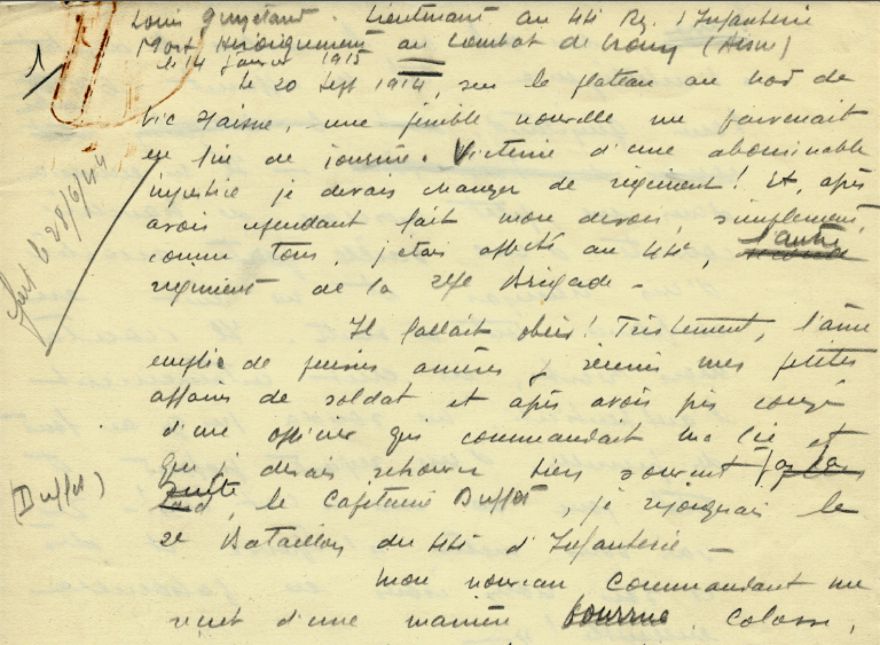 Louis Guyetand. Lieutenant au 44e Rg. d'Infanterie
Mort Héroïquement au Combat de Crouy (Aisne)
le 14 Janvier 1915
1)
le 20 Sept 1914, sur le plateau au nord de
Vic s/Aisne, une pénible nouvelle me parvenait
en fin de journée. Victime d'une abominable
injustice je devais changer de régiment! Et, après
avoir cependant fait mon devoir, simplement,
comme tous, j'étais affecté au 44e, l'autre
régiment de la Brigade -
fait le 28/6/44
Il fallait obéir! Tristement, l'âme
emplie de pensées amères je réunis mes petites
affaires de soldat et après avoir pris congé
d'un officier qui commandait ma Cie et
que je devais retrouver bien souvent par la
suite, le Capitaine Buffet, je rejoignais le
(Buffet)
2e Bataillon du 44e d'Infanterie -
Mon nouveau Commandant me
reçut d'une manière bourrue. Colosse,